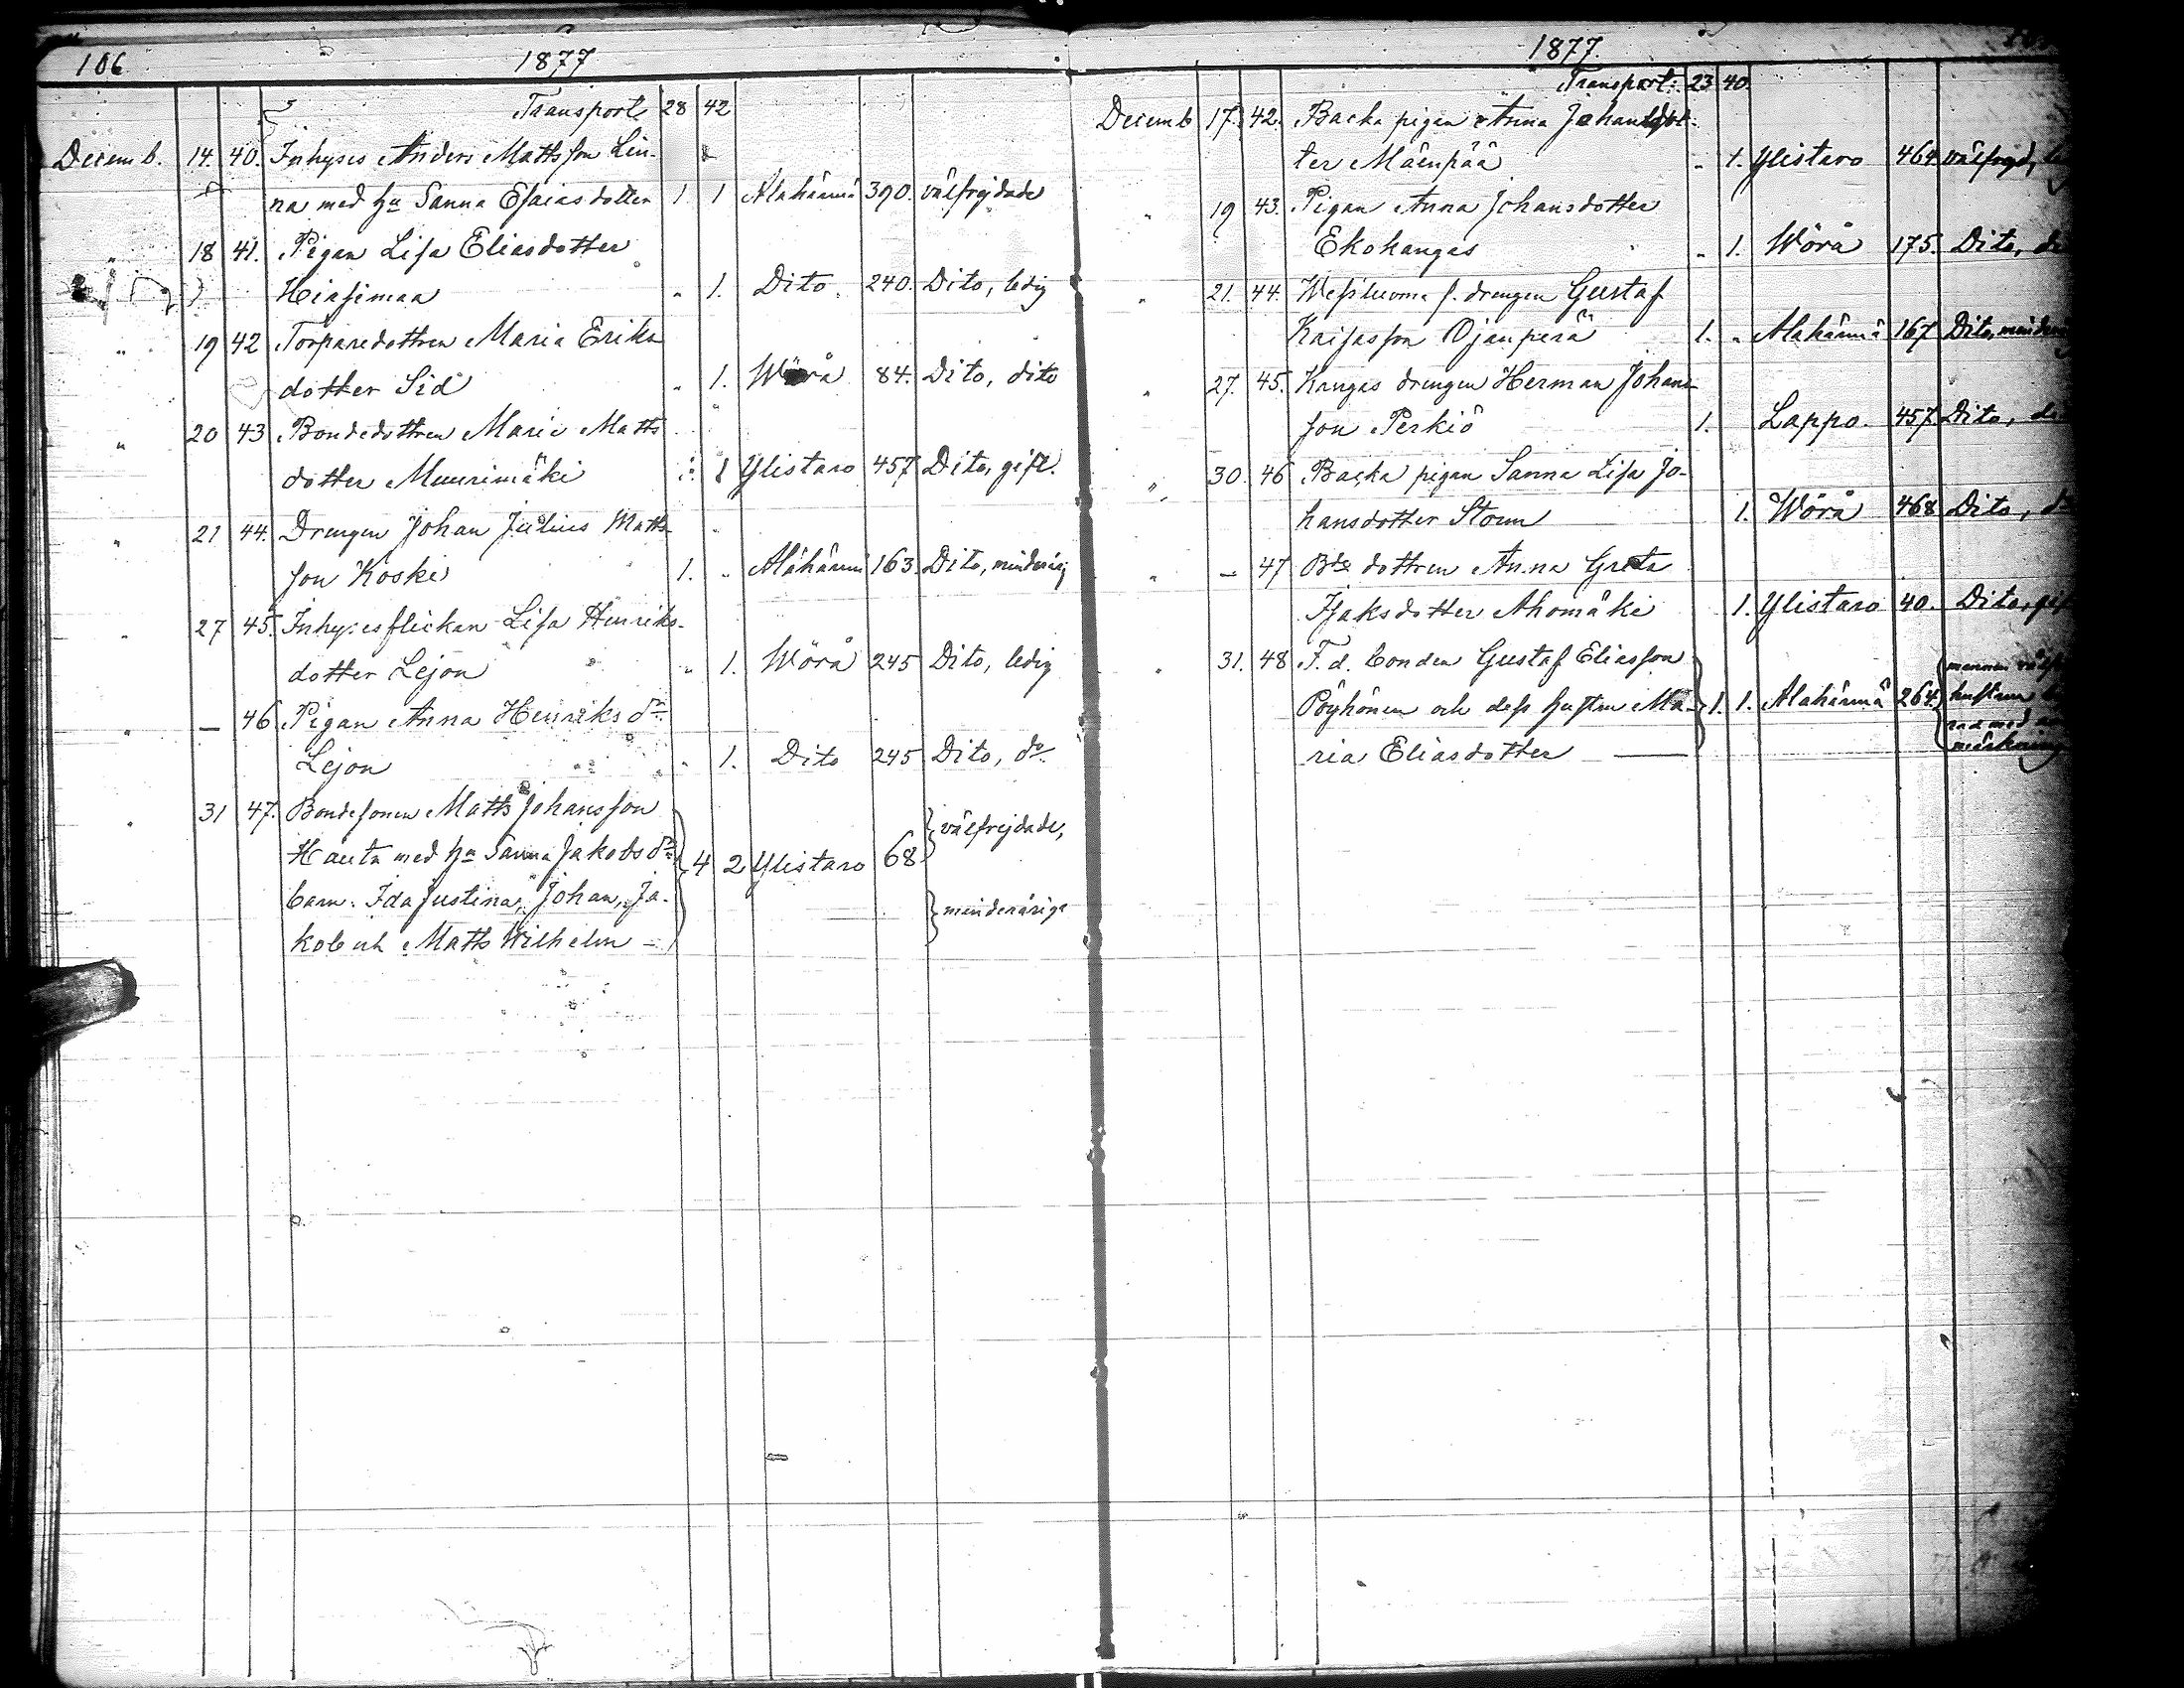 106
1877
Transport 28 42
Decemb. 14. 40. Inhyses Anders Mattsson Lin-
na med hu Sanna Esaiasdotter 1. 1 Alahärmä 390. välfrejdade
" 18 41. Pigan Lisa Eliasdotter
" 1. Dito. 240. Dito, ledig
" 19 42 Torparedottren Maria Eriks
dotter Sid " 1. Wörå 84. Dito, dito
" 20 43 Bondedottren Maria Matts
dotter Muurimäki 1 Ylistaro 457 Dito, gift.
" 21 44. Drengen Johan Julius Matts-
son Koski 1. " Alahärmä 163. Dito, minderårig
" 27 45. Inhysesflickan Lisa Henriks-
dotter Lejon " 1. Wörå 245 Dito, ledig
" — 46. Pigan Anna Henriks dr
Lejon " 1. Dito 245 Dito, do
" 31 47. Bondesonen Matts Johansson
Hauta med hu Sanna Jakobs dr 4 2 Ylistaro 68 välfrejdade,
barn: Ida Justina, Johan, Ja- minderårige
kob och Matts Wilhelm —
1877
Transport: 23 40.
Decemb 17. 42. Backa pigan Anna Johansdot-
ter Mäenpää " 1. Ylistaro 464 välfrejd,
" 19 43. Pigan Anna Johansdotter
Ekokangas " 1. Wörå 175. Dito,
" 21. 44. f. drengen Gustaf
Kaisasson Ojanperä 1. " Alahärmä 167 Dito,
" 27. 45. Kangas drengen Herman Johans-
son Perkiö 1. Lappo. 457. Dito,
" 30. 46 Backa pigan Sanna Lisa Jo-
hansdotter Storm 1. Wörå 468 Dito,
" — 47 Bde dottren Anna Greta
Isaksdotter Ahomäki 1. Ylistaro 40. Dito,
" 31. 48 F. d. bonden Gustaf Eliasson
Pöyhönen och dess hustru Ma- 1. 1. Alahärmä 264. mannen
ria Eliasdotter — hustrun